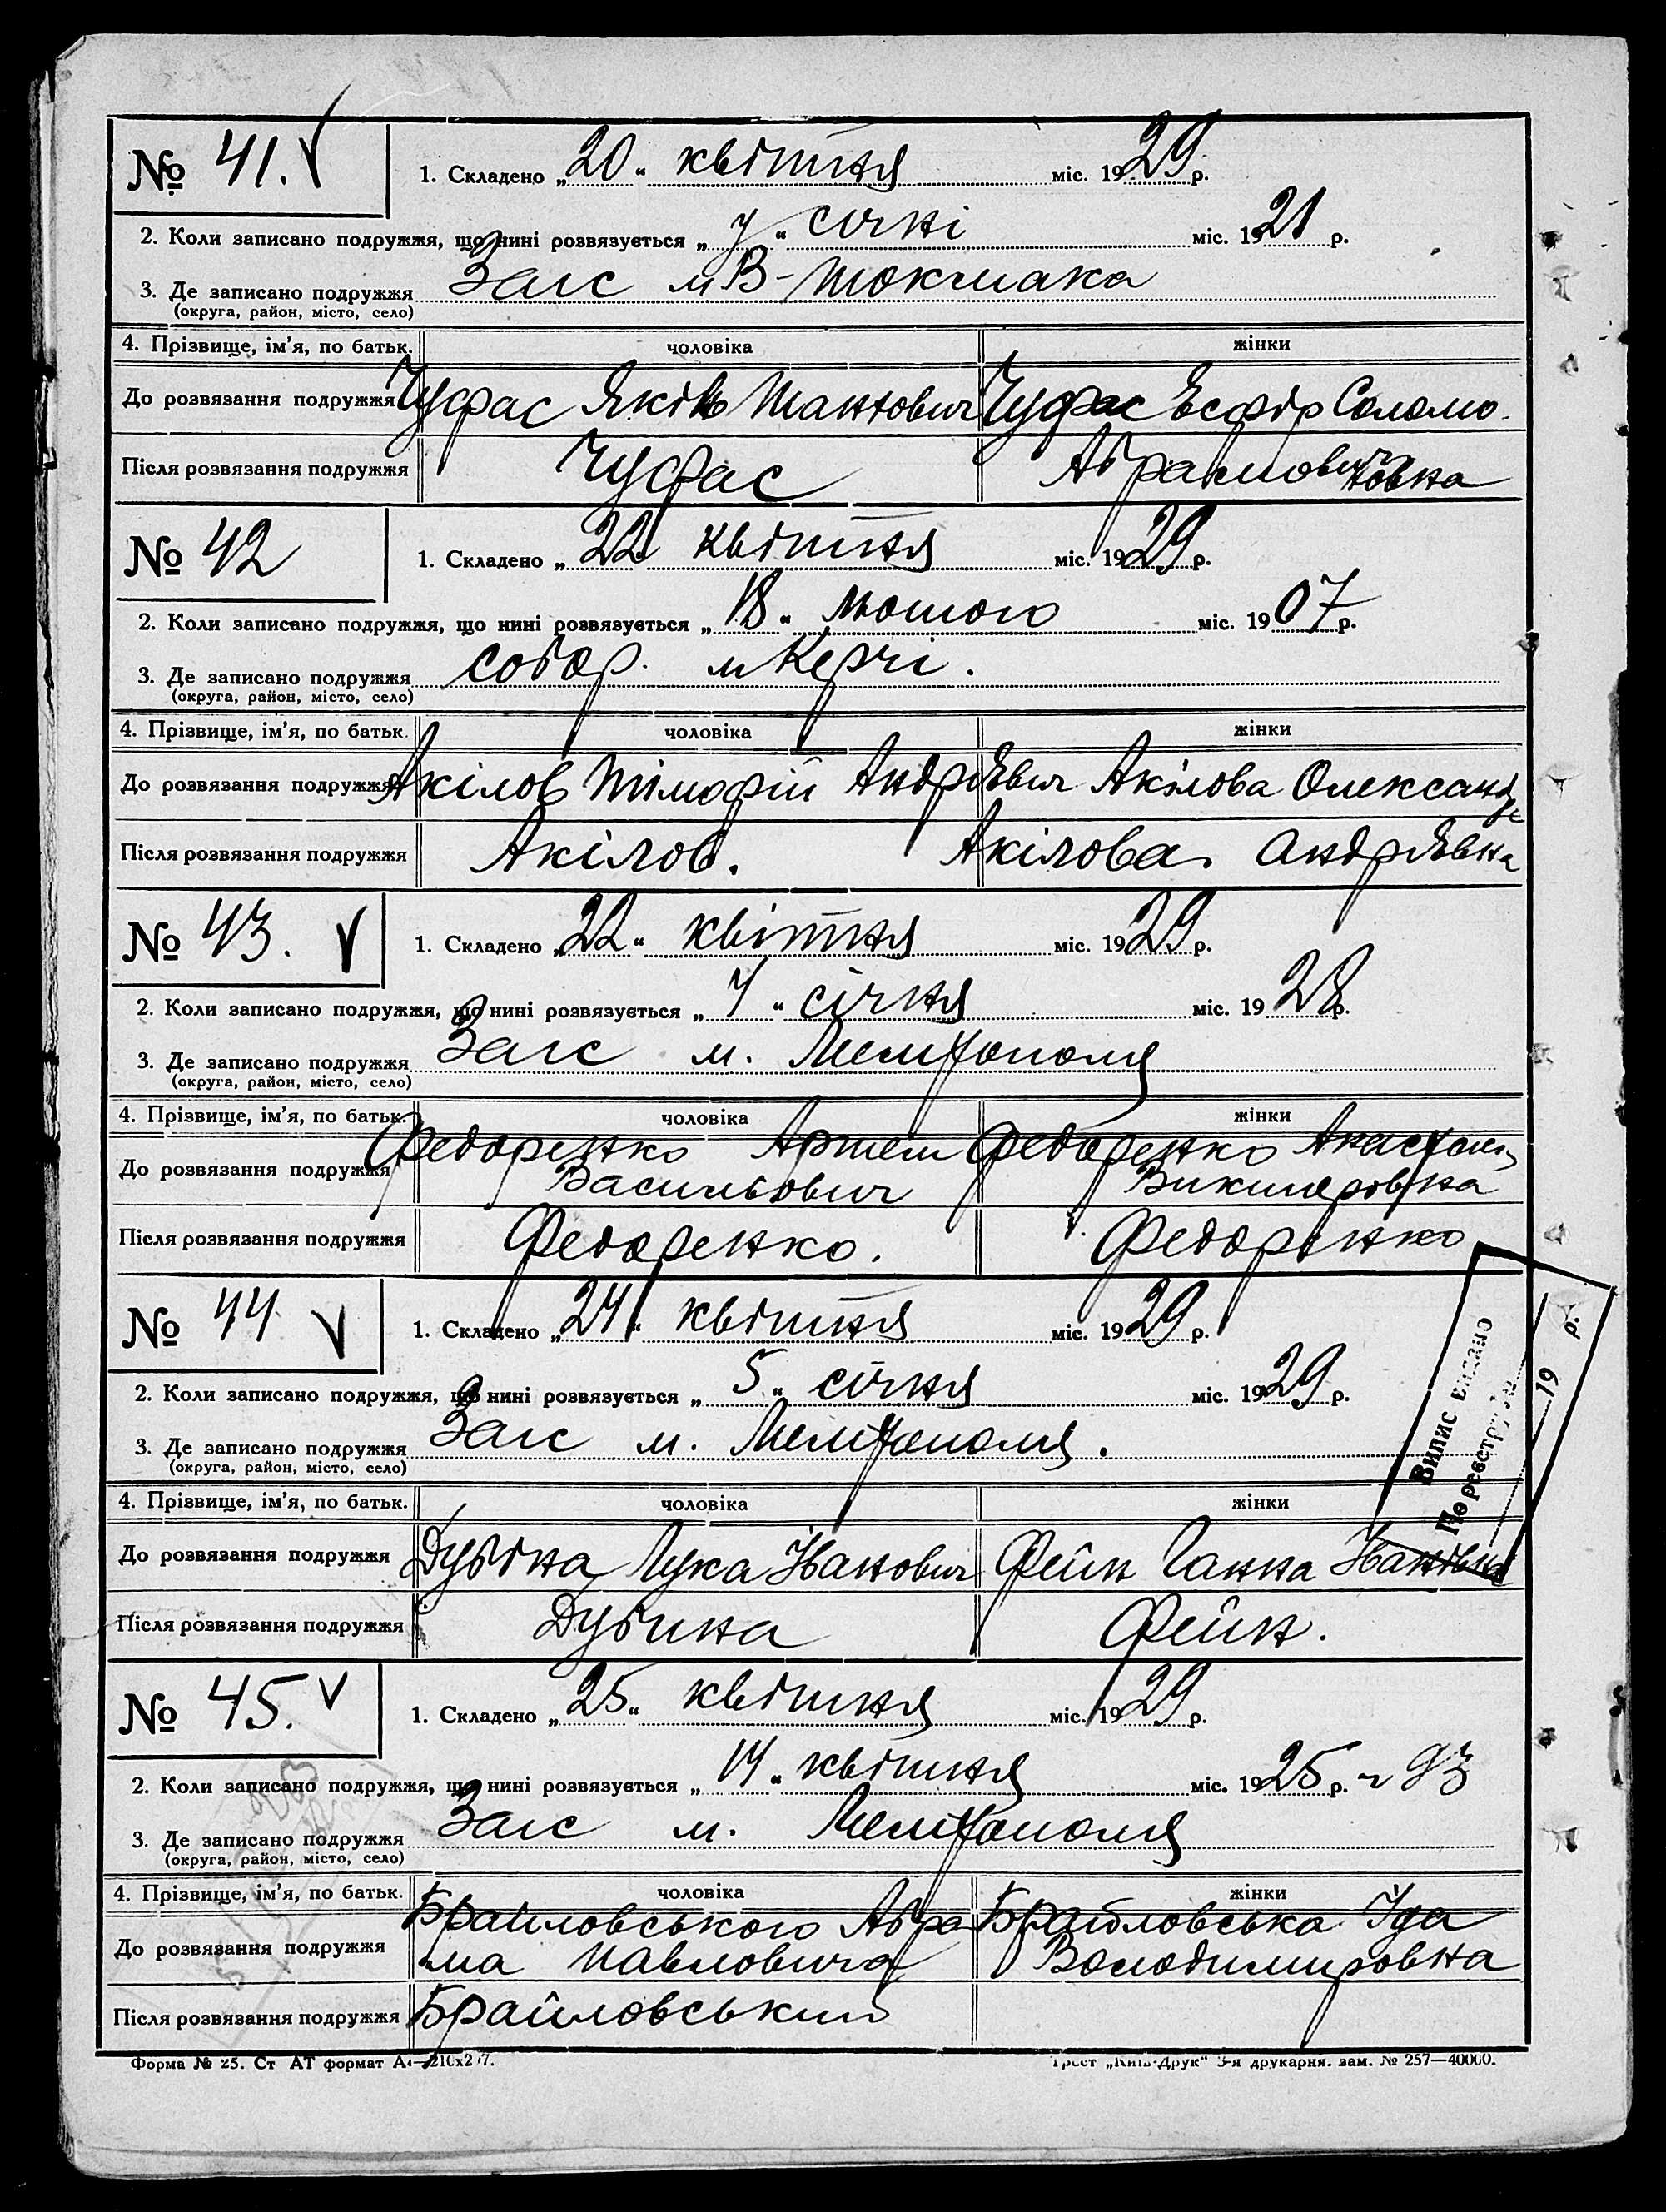 № 41. V
1. Складено „20“ квітня міс. 1929 р.
2. Коли записано подружжя, що нині розвязується „у“ січні міс. 1921 р.
3. Де записано подружжя Загс м В-Токмака
(округа, район, місто, село)
4. Прізвище, ім’я, по батьк. чоловіка жінки
До розвязання подружжя Чуфас Яків Шанович Чуфас Есфір Соломо-
Після розвязання подружжя Чуфас Абрамович новна
№ 42
1. Складено „22 квітня міс. 1929 р.
2. Коли записано подружжя, що нині розвязується „18“ лютого міс. 1907 р.
3. Де записано подружжя собор. м Керчі.
(округа, район, місто, село)
4. Прізвище, ім’я, по батьк. чоловіка жінки
До розвязання подружжя Акілов Тімофій Андрієвич Акілова Олександр
Після розвязання подружжя Акілов. Акілова. Андрієвна
№ 43. V
1. Складено „22“ квітня міс. 1929 р.
2. Коли записано подружжя, що нині розвязується „7“ січня міс. 1928 р.
3. Де записано подружжя Загс м. Мелітополя
(округа, район, місто, село)
4. Прізвище, ім’я, по батьк. чоловіка жінки
До розвязання подружжя Федоренко Артем Федоренко
Васильович
Після розвязання подружжя Федоренко. Федоренко
№ 44 V
1. Складено „24“ квітня міс. 1929 р.
2. Коли записано подружжя, що нині розвязується „5“ січня міс. 1929 р.
3. Де записано подружжя Загс м. Мелітополя.
(округа, район, місто, село)
Випис видано
По реєстру №
19 р.
4. Прізвище, ім’я, по батьк. чоловіка жінки
До розвязання подружжя Дубіна Лука Іванович Фейн Ганна Іванівна
Після розвязання подружжя Дубина Фейн.
№ 45. V
1. Складено „25“ квітня міс. 1929 р.
2. Коли записано подружжя, що нині розвязується „14“ квітня міс. 1925 р. 93
3. Де записано подружжя Загс м. Мелітополя
(округа, район, місто, село)
4. Прізвище, ім’я, по батьк. чоловіка жінки
До розвязання подружжя Браиловського Абра Брайловська Іда
ма Павловича Володимировна
Після розвязання подружжя Брайловський
Форма № 25. Ст АТ формат А4—210х297.
Трест „Київ-Друк“ 3-я друкарня. зам. № 257—40000.